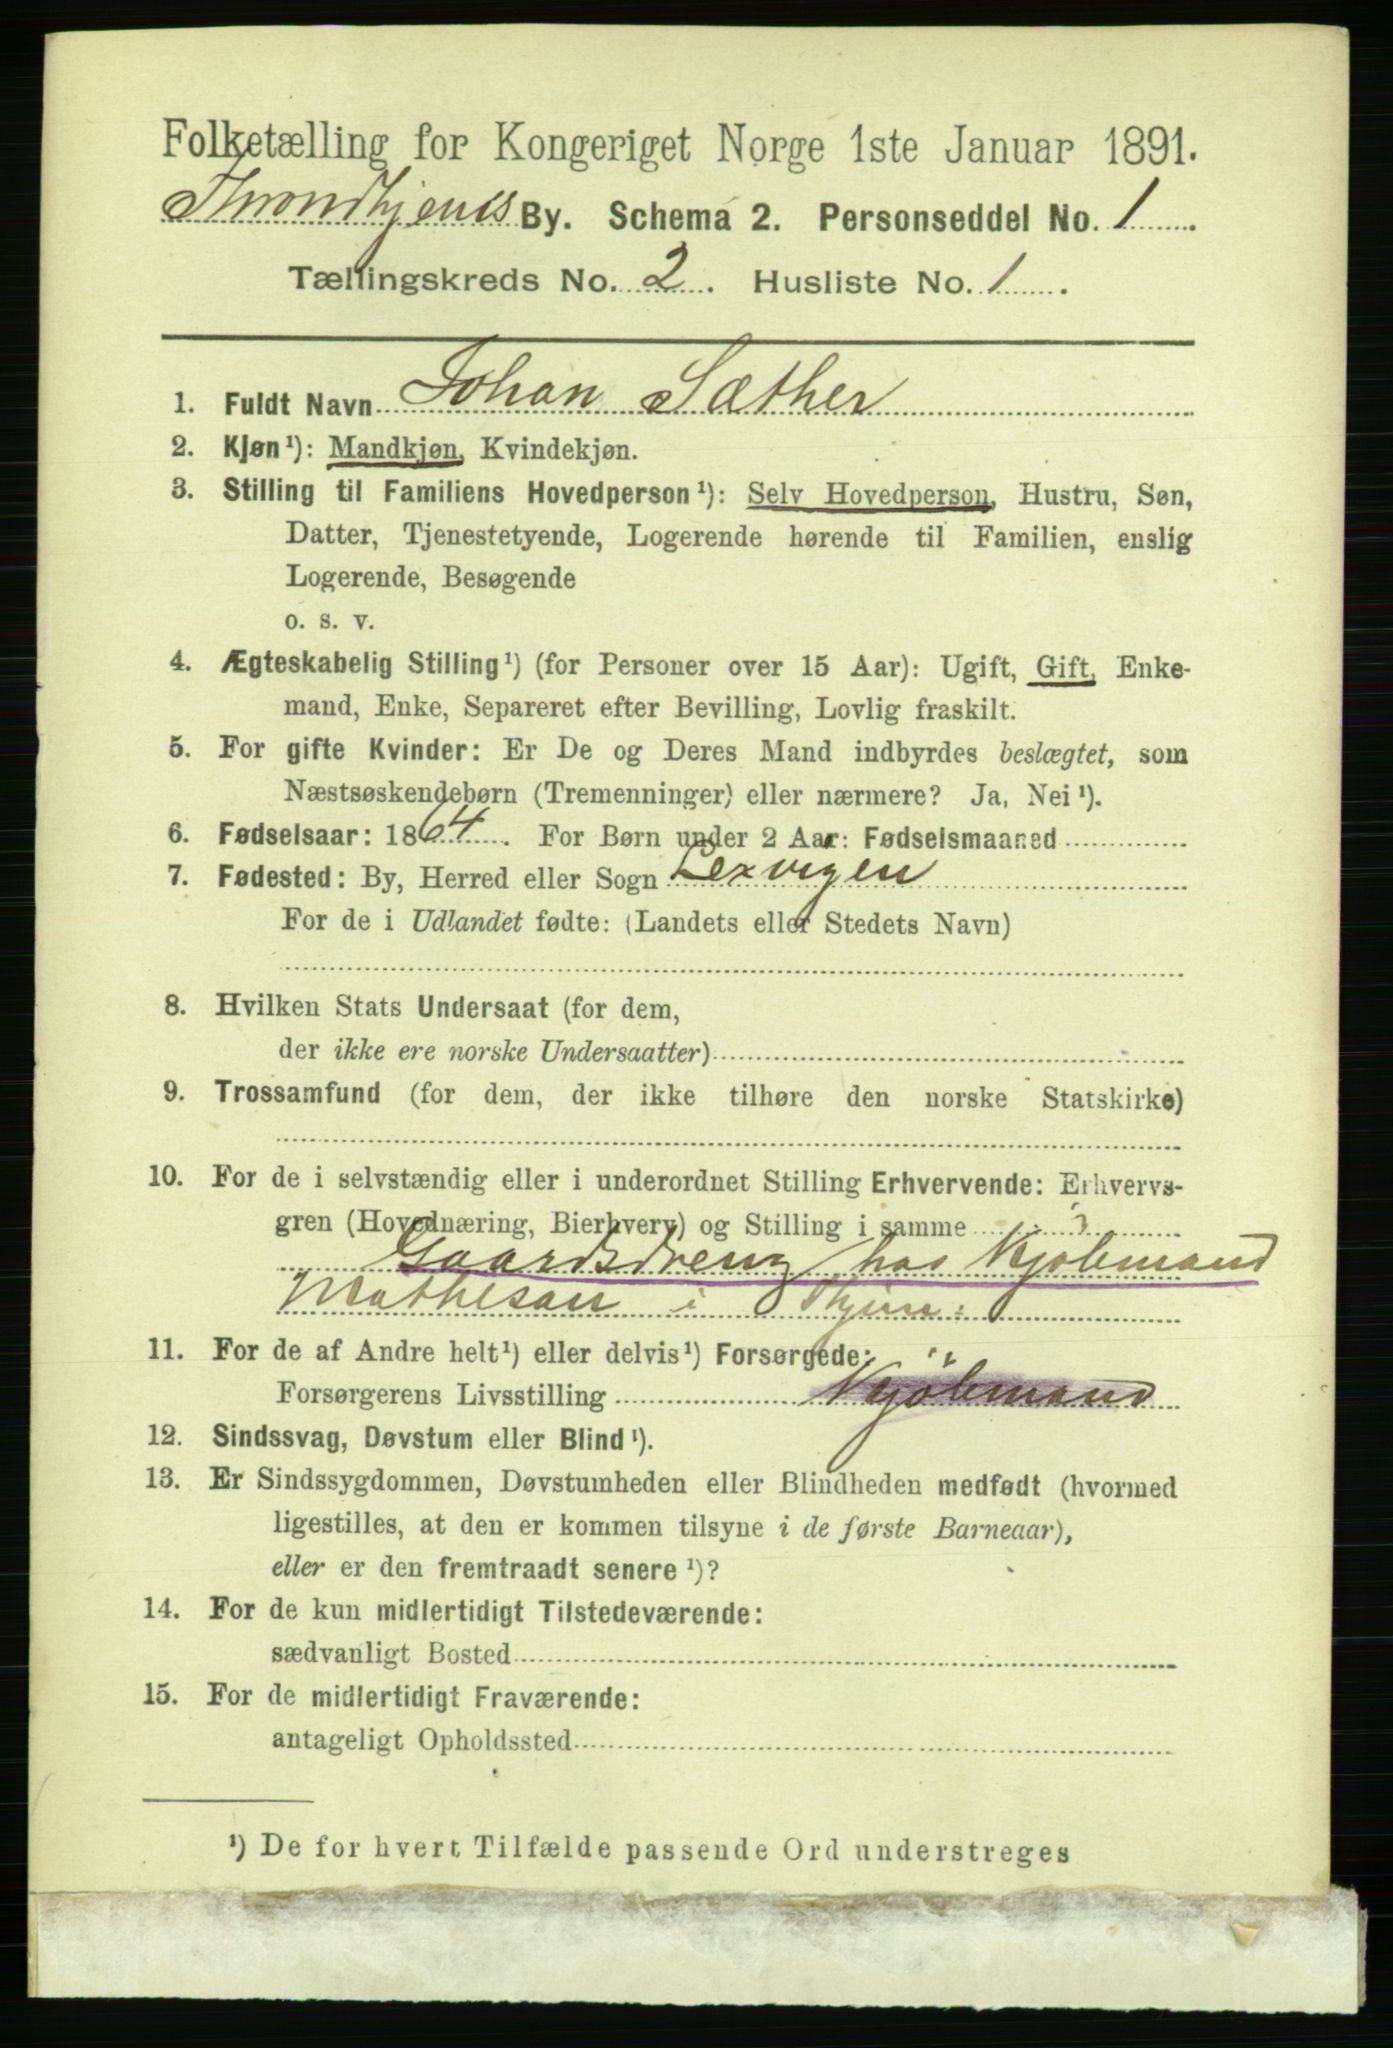 Folketælling for Kongeriget Norge 1ste Januar 1891.
Throndhjems By. Schema 2. Personseddel No. 1
Tællingskreds No. 2. Husliste No. 1.
1. Fuldt Navn Johan Sæther
2. Kjøn¹): Mandkjøn, Kvindekjøn.
3. Stilling til Familiens Hovedperson¹): Selv Hovedperson, Hustru, Søn,
Datter, Tjenestetyende, Logerende hørende til Familien, enslig
Logerende, Besøgende
o. s. v.
4. Ægteskabelig Stilling¹) (for Personer over 15 Aar): Ugift, Gift, Enke-
mand, Enke, Separeret efter Bevilling, Lovlig fraskilt.
5. For gifte Kvinder: Er De og Deres Mand indbyrdes beslægtet, som
Næstsøskendebørn (Tremenninger) eller nærmere? Ja, Nei¹).
6. Fødselsaar: 1864. For Børn under 2 Aar: Fødselsmaaned
7. Fødested: By, Herred eller Sogn Lexvigen
For de i Udlandet fødte: (Landets eller Stedets Navn)
8. Hvilken Stats Undersaat (for dem,
der ikke ere norske Undersaatter)
9. Trossamfund (for dem, der ikke tilhøre den norske Statskirke)
10. For de i selvstændig eller i underordnet Stilling Erhvervende: Erhvervs-
gren (Hovednæring, Bierhverv) og Stilling i samme 3
Gaardsdreng hos Kjøbmand
Mathesan i Thjem:
11. For de af Andre helt¹) eller delvis¹) Forsørgede:
Forsørgerens Livsstilling Kjøbmand
12. Sindssvag, Døvstum eller Blind¹).
13. Er Sindssygdommen, Døvstumheden eller Blindheden medfødt (hvormed
ligestilles, at den er kommen tilsyne i de første Barneaar),
eller er den fremtraadt senere¹)?
14. For de kun midlertidigt Tilstedeværende:
sædvanligt Bosted
15. For de midlertidigt Fraværende:
antageligt Opholdssted
¹) De for hvert Tilfælde passende Ord understreges